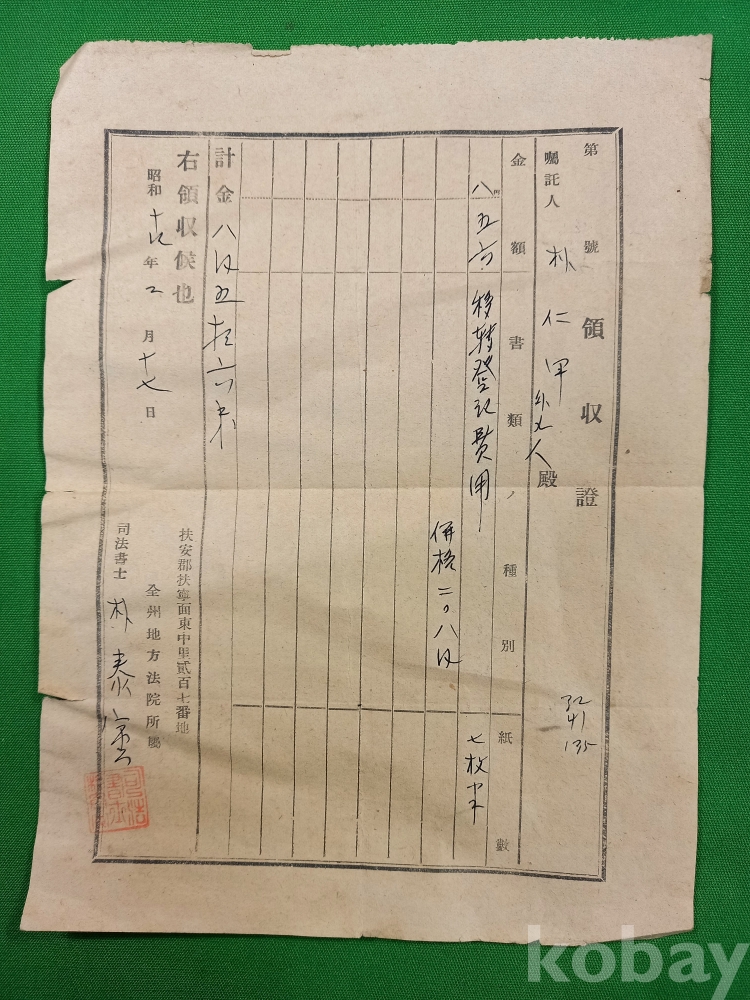 第 號 領収證
囑託人 朴仁甲 外七人殿
金額 書類ノ種別 紙數
八円五六 移轉登記費用 七枚半
価格二〇八円
32
41
135
計金 八円五拾六戋
右領収候也
昭和 十七年 二月 十七日
扶安郡扶寧面東中里貳百七番地
全州地方法院所屬
司法書士 朴泰
kobay